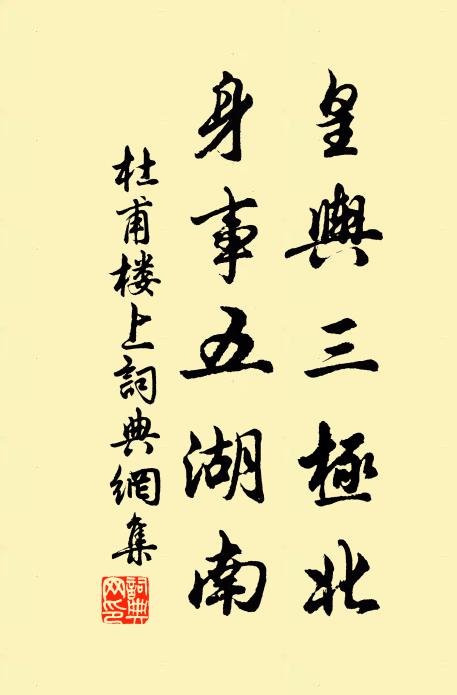 皇輿三極北
身事五湖南
杜甫楼上詞典網集
詞典网印